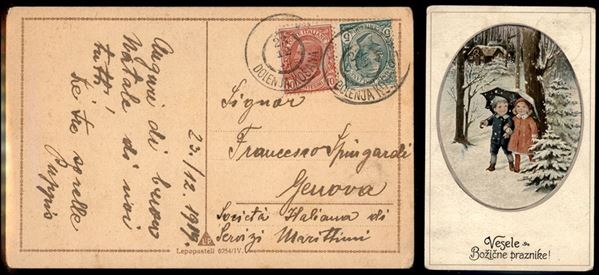 Auguri di buon
Natale di noi
tutti!
Le tre sorelle
DOLENJA KOŠANA
DOLENJA KOŠANA
Signor
23/12 19
Francesco Spingardi
Genova
Società Italiana di
Servizi Marittimi
Lepopastell 6254/IV.
Vesele
Božične praznike!